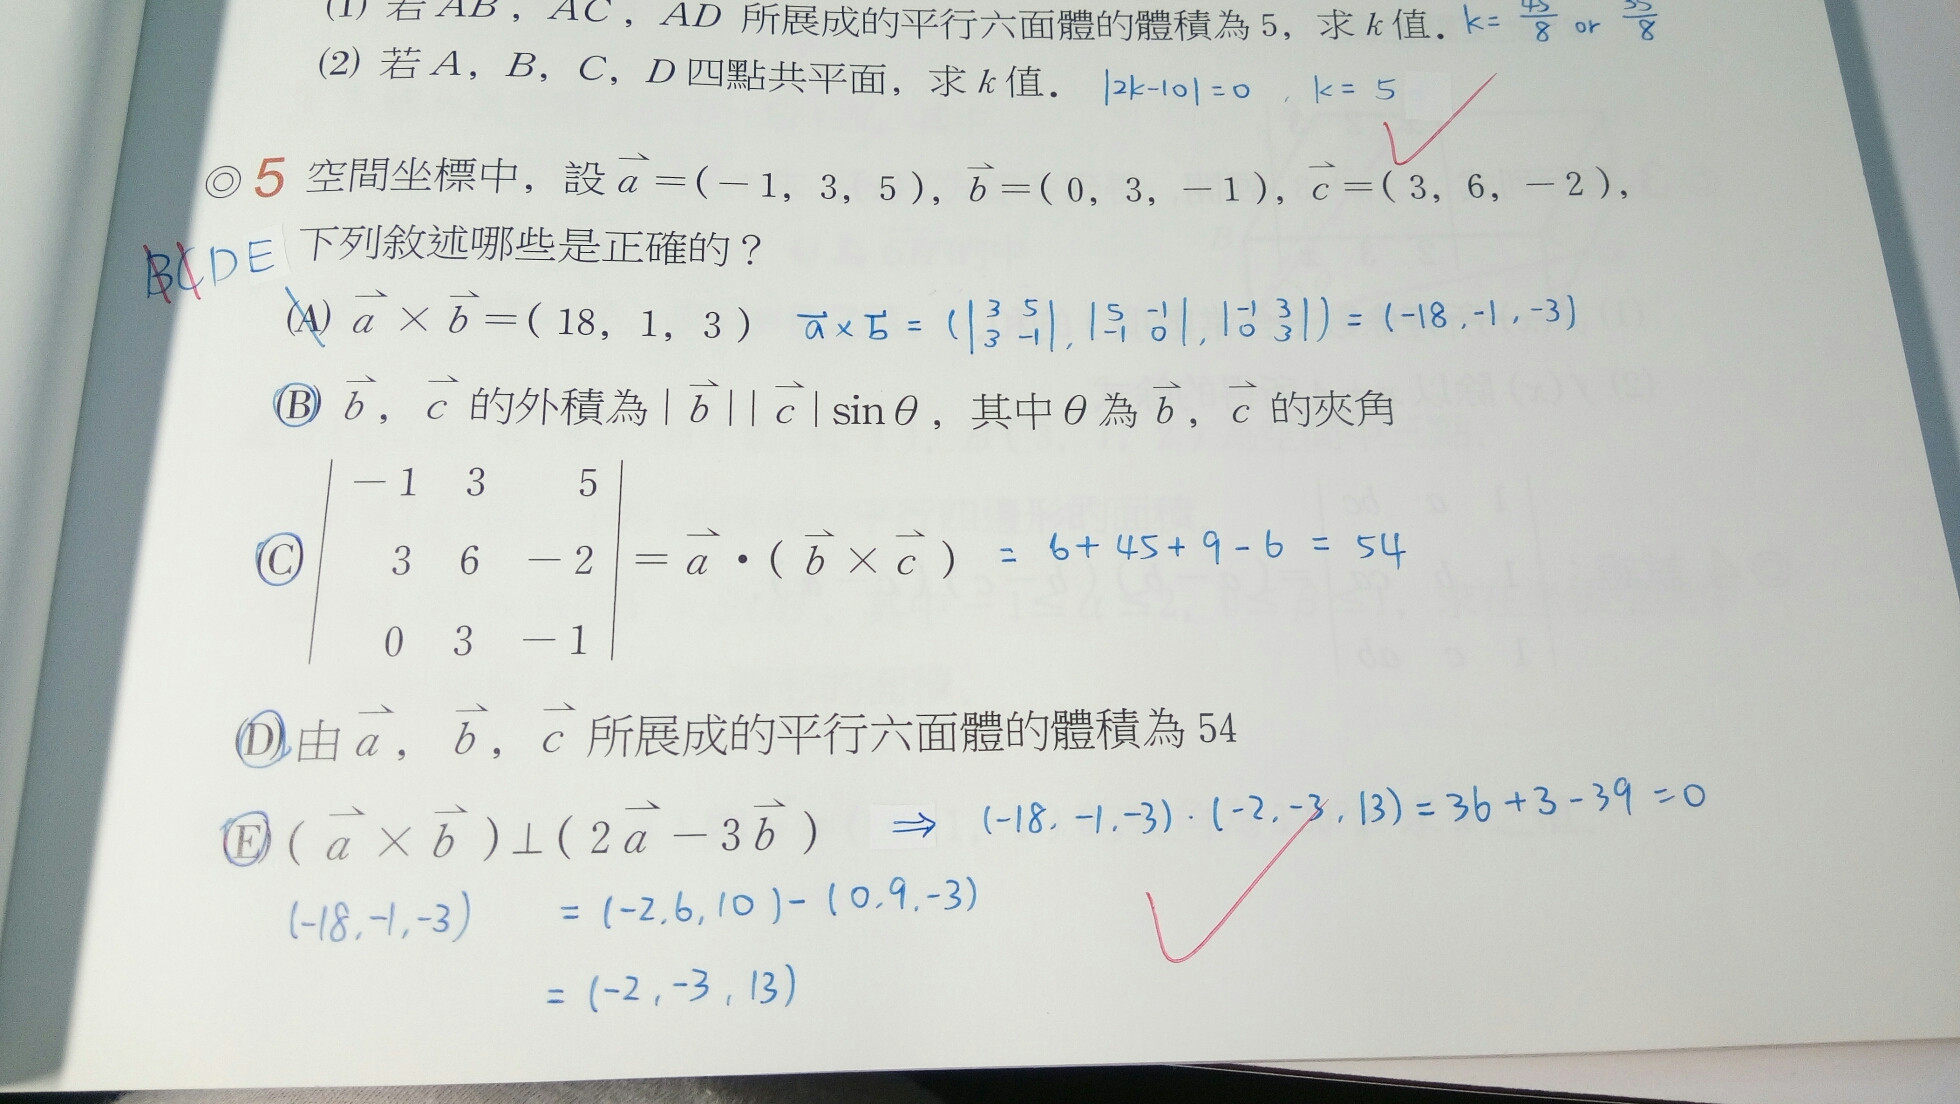 (1) 若 AB，AC，AD 所展成的平行六面體的體積為 5，求 k 值． k= 45/8 or 35/8
(2) 若 A，B，C，D 四點共平面，求 k 值． |2k-10|=0 , k= 5
◎5 空間坐標中，設 a⃗＝(－1，3，5)，b⃗＝(0，3，－1)，c⃗＝(3，6，－2)，
BCDE 下列敘述哪些是正確的？
(A) a⃗ × b⃗＝(18，1，3) a⃗×b⃗ = (|3 5 / 3 -1|, |5 -1 / -1 0|, |-1 3 / 0 3|) = (-18,-1,-3)
(B) b⃗，c⃗ 的外積為｜b⃗｜｜c⃗｜sinθ，其中 θ 為 b⃗，c⃗ 的夾角
－1 3 5
(C) 3 6 －2 ＝ a⃗ • ( b⃗ × c⃗ ) = 6+45+9-6 = 54
0 3 －1
(D) 由 a⃗，b⃗，c⃗ 所展成的平行六面體的體積為 54
(E) ( a⃗ × b⃗ )⊥( 2a⃗ －3b⃗ ) ⇒ (-18,-1,-3)·(-2,-3,13)=36+3-39=0
(-18,-1,-3) = (-2,6,10)-(0,9,-3)
= (-2,-3,13)